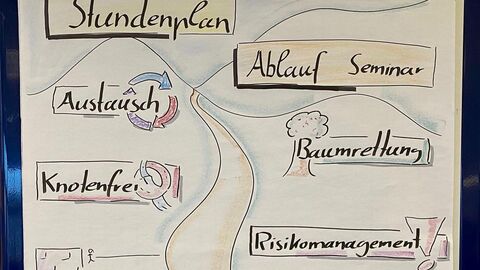 Stundenplan
Ablauf Seminar
Austausch
Baumrettung
Knotenfrei
Risikomanagement